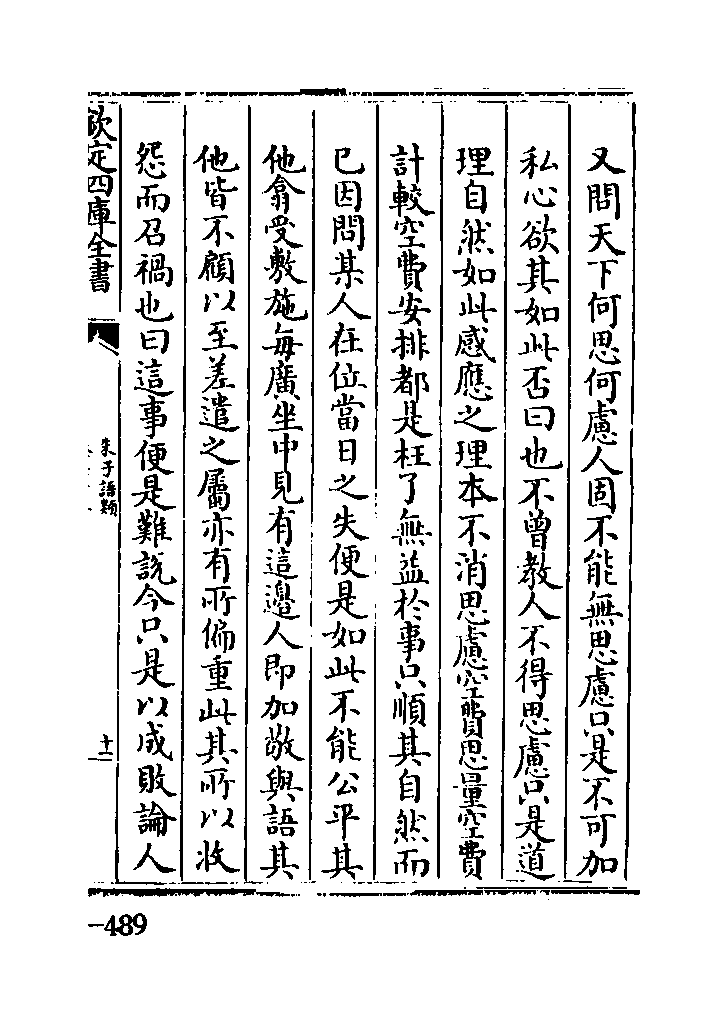 又問天下何思何慮人固不能無思慮只是不可加
私心欲其如此否曰也不曾教人不得思慮只是道
理自然如此感應之理本不消思慮空費思量空費
計較空費安排都是枉了無益於事只順其自然而
已因問某人在位當日之失便是如此不能公平其
他翕受敷施每廣坐中見有這邊人即加敬與語其
他皆不顧以至差遣之屬亦有所偏重此其所以收
怨而召禍也曰這事便是難説今只是以成敗論人
欽定四庫全書
朱子語類
十一
-489